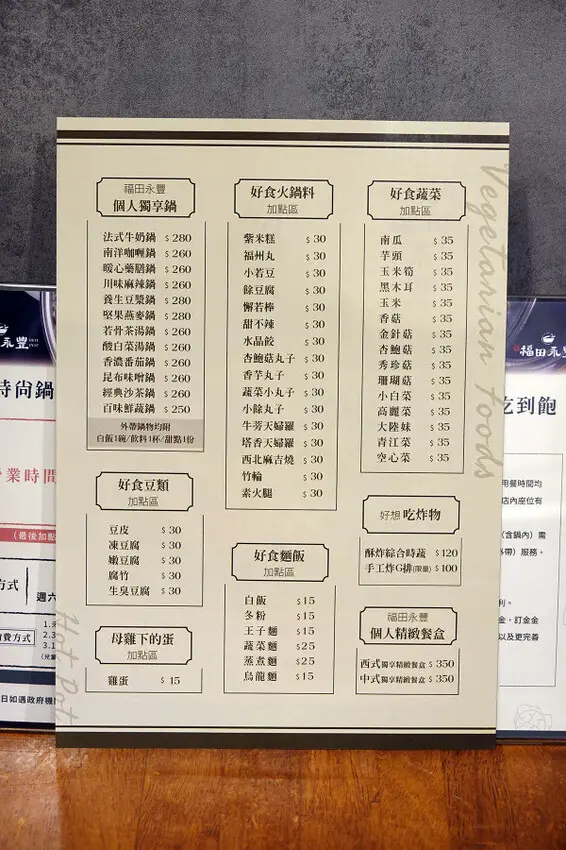 福田永豐
個人獨享鍋
法式牛奶鍋 $280
南洋咖喱鍋 $260
暖心藥膳鍋 $260
川味麻辣鍋 $260
養生豆漿鍋 $280
堅果燕麥鍋 $280
若骨茶湯鍋 $260
酸白菜湯鍋 $260
香濃番茄鍋 $260
昆布味噌鍋 $260
經典沙茶鍋 $260
百味鮮蔬鍋 $250
外帶鍋物均附
白飯1碗/飲料1杯/甜點1份
好食豆類
加點區
豆皮 $30
凍豆腐 $30
嫩豆腐 $30
腐竹 $30
生臭豆腐 $30
母雞下的蛋
加點區
雞蛋 $15
好食火鍋料
加點區
紫米糕 $30
福州丸 $30
小若豆 $30
餘豆腐 $30
懈若棒 $30
甜不辣 $30
水晶餃 $30
杏鮑菇丸子 $30
香芋丸子 $30
蔬菜小丸子 $30
小餘丸子 $30
牛蒡天婦羅 $30
塔香天婦羅 $30
西北麻吉燒 $30
竹輪 $30
素火腿 $30
好食麵飯
加點區
白飯 $15
冬粉 $15
王子麵 $15
蔬菜麵 $25
蒸煮麵 $25
烏龍麵 $15
好食蔬菜
加點區
南瓜 $35
芋頭 $35
玉米筍 $35
黑木耳 $35
玉米 $35
香菇 $35
金針菇 $35
杏鮑菇 $35
秀珍菇 $35
珊瑚菇 $35
小白菜 $35
高麗菜 $35
大陸妹 $35
青江菜 $35
空心菜 $35
好想 吃炸物
酥炸綜合時蔬 $120
手工炸G排(限量) $100
福田永豐
個人精緻餐盒
西式獨享精緻餐盒 $350
中式獨享精緻餐盒 $350
Vegetarian Foods
Hot Pot
永豐
時尚鍋
業時間
(最後加點
方式
週六
費方式
日如遇政府機
福田永豐
吃到飽
用餐時間均
店內座位有
(含鍋內) 需
外帶) 服務。
利。
金，訂金金
以及更完善